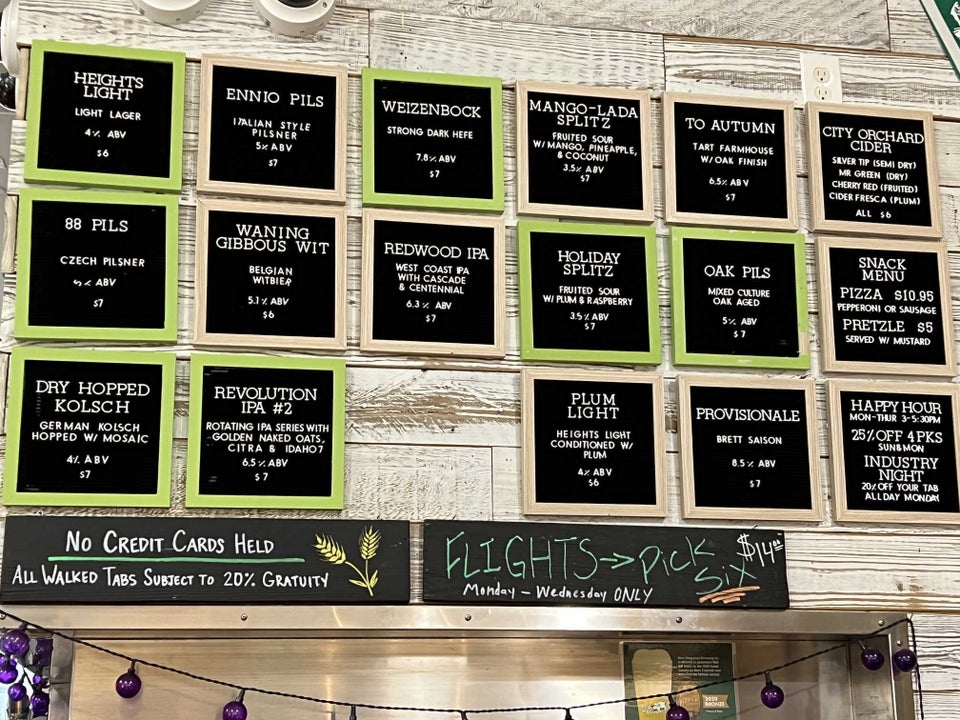 HEIGHTS
LIGHT
LIGHT LAGER
4% ABV
$6
ENNIO PILS
ITALIAN STYLE
PILSNER
5% ABV
$7
WEIZENBOCK
STRONG DARK HEFE
7.8% ABV
$7
MANGO-LADA
SPLITZ
FRUITED SOUR
W/ MANGO, PINEAPPLE,
& COCONUT
3.5% ABV
$7
TO AUTUMN
TART FARMHOUSE
W/ OAK FINISH
6.5% ABV
$7
CITY ORCHARD
CIDER
SILVER TIP (SEMI DRY)
MR GREEN (DRY)
CHERRY RED (FRUITED)
CIDER FRESCA (PLUM)
ALL $6
88 PILS
CZECH PILSNER
ABV
$7
WANING
GIBBOUS WIT
BELGIAN
WITBIER
5.1% ABV
$6
REDWOOD IPA
WEST COAST IPA
WITH CASCADE
& CENTENNIAL
6.3% ABV
$7
HOLIDAY
SPLITZ
FRUITED SOUR
W/ PLUM & RASPBERRY
3.5% ABV
$7
OAK PILS
MIXED CULTURE
OAK AGED
5% ABV
$7
SNACK
MENU
PIZZA $10.95
PEPPERONI OR SAUSAGE
PRETZLE $5
SERVED W/ MUSTARD
DRY HOPPED
KOLSCH
GERMAN KOLSCH
HOPPED W/ MOSAIC
4% ABV
$7
REVOLUTION
IPA #2
ROTATING IPA SERIES WITH
GOLDEN NAKED OATS,
CITRA & IDAHO7
6.5% ABV
$7
PLUM
LIGHT
HEIGHTS LIGHT
CONDITIONED W/
PLUM
4% ABV
$6
PROVISIONALE
BRETT SAISON
8.5% ABV
$7
HAPPY HOUR
MON-THUR 3-5:30PM
25% OFF 4 PKS
SUN&MON
INDUSTRY
NIGHT
20% OFF YOUR TAB
ALL DAY MONDAY
NO CREDIT CARDS HELD
ALL WALKED TABS SUBJECT TO 20% GRATUITY
FLIGHTS → pick six $14
Monday - Wednesday ONLY